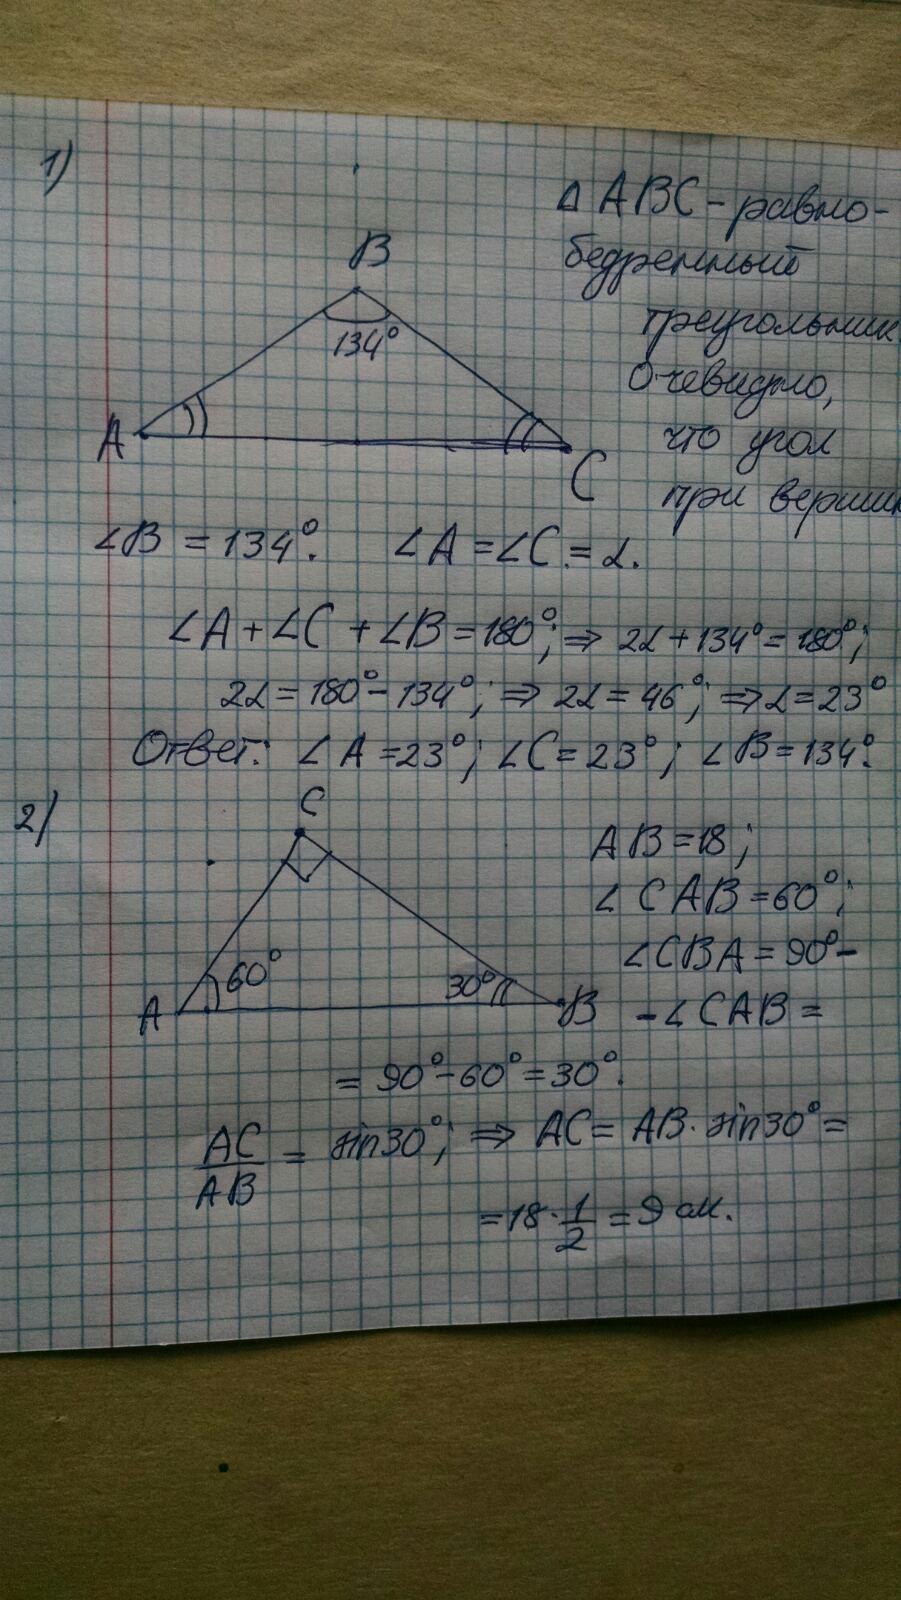 1)
B
134°
A
C
Δ ABC - равно-
бедренный
треугольник
Очевидно,
что угол
при
∠B = 134°. ∠A = ∠C = α.
∠A + ∠C + ∠B = 180°; ⇒ 2α + 134° = 180°;
2α = 180° - 134°; ⇒ 2α = 46°; ⇒ α = 23°
Ответ: ∠A = 23°; ∠C = 23°; ∠B = 134°.
2)
C
60°
30°
A
B
AB = 18;
∠CAB = 60°;
∠CBA = 90° -
- ∠CAB =
= 90° - 60° = 30°.
AC/AB = sin30°; ⇒ AC = AB · sin30° =
= 18 · 1/2 = 9 см.